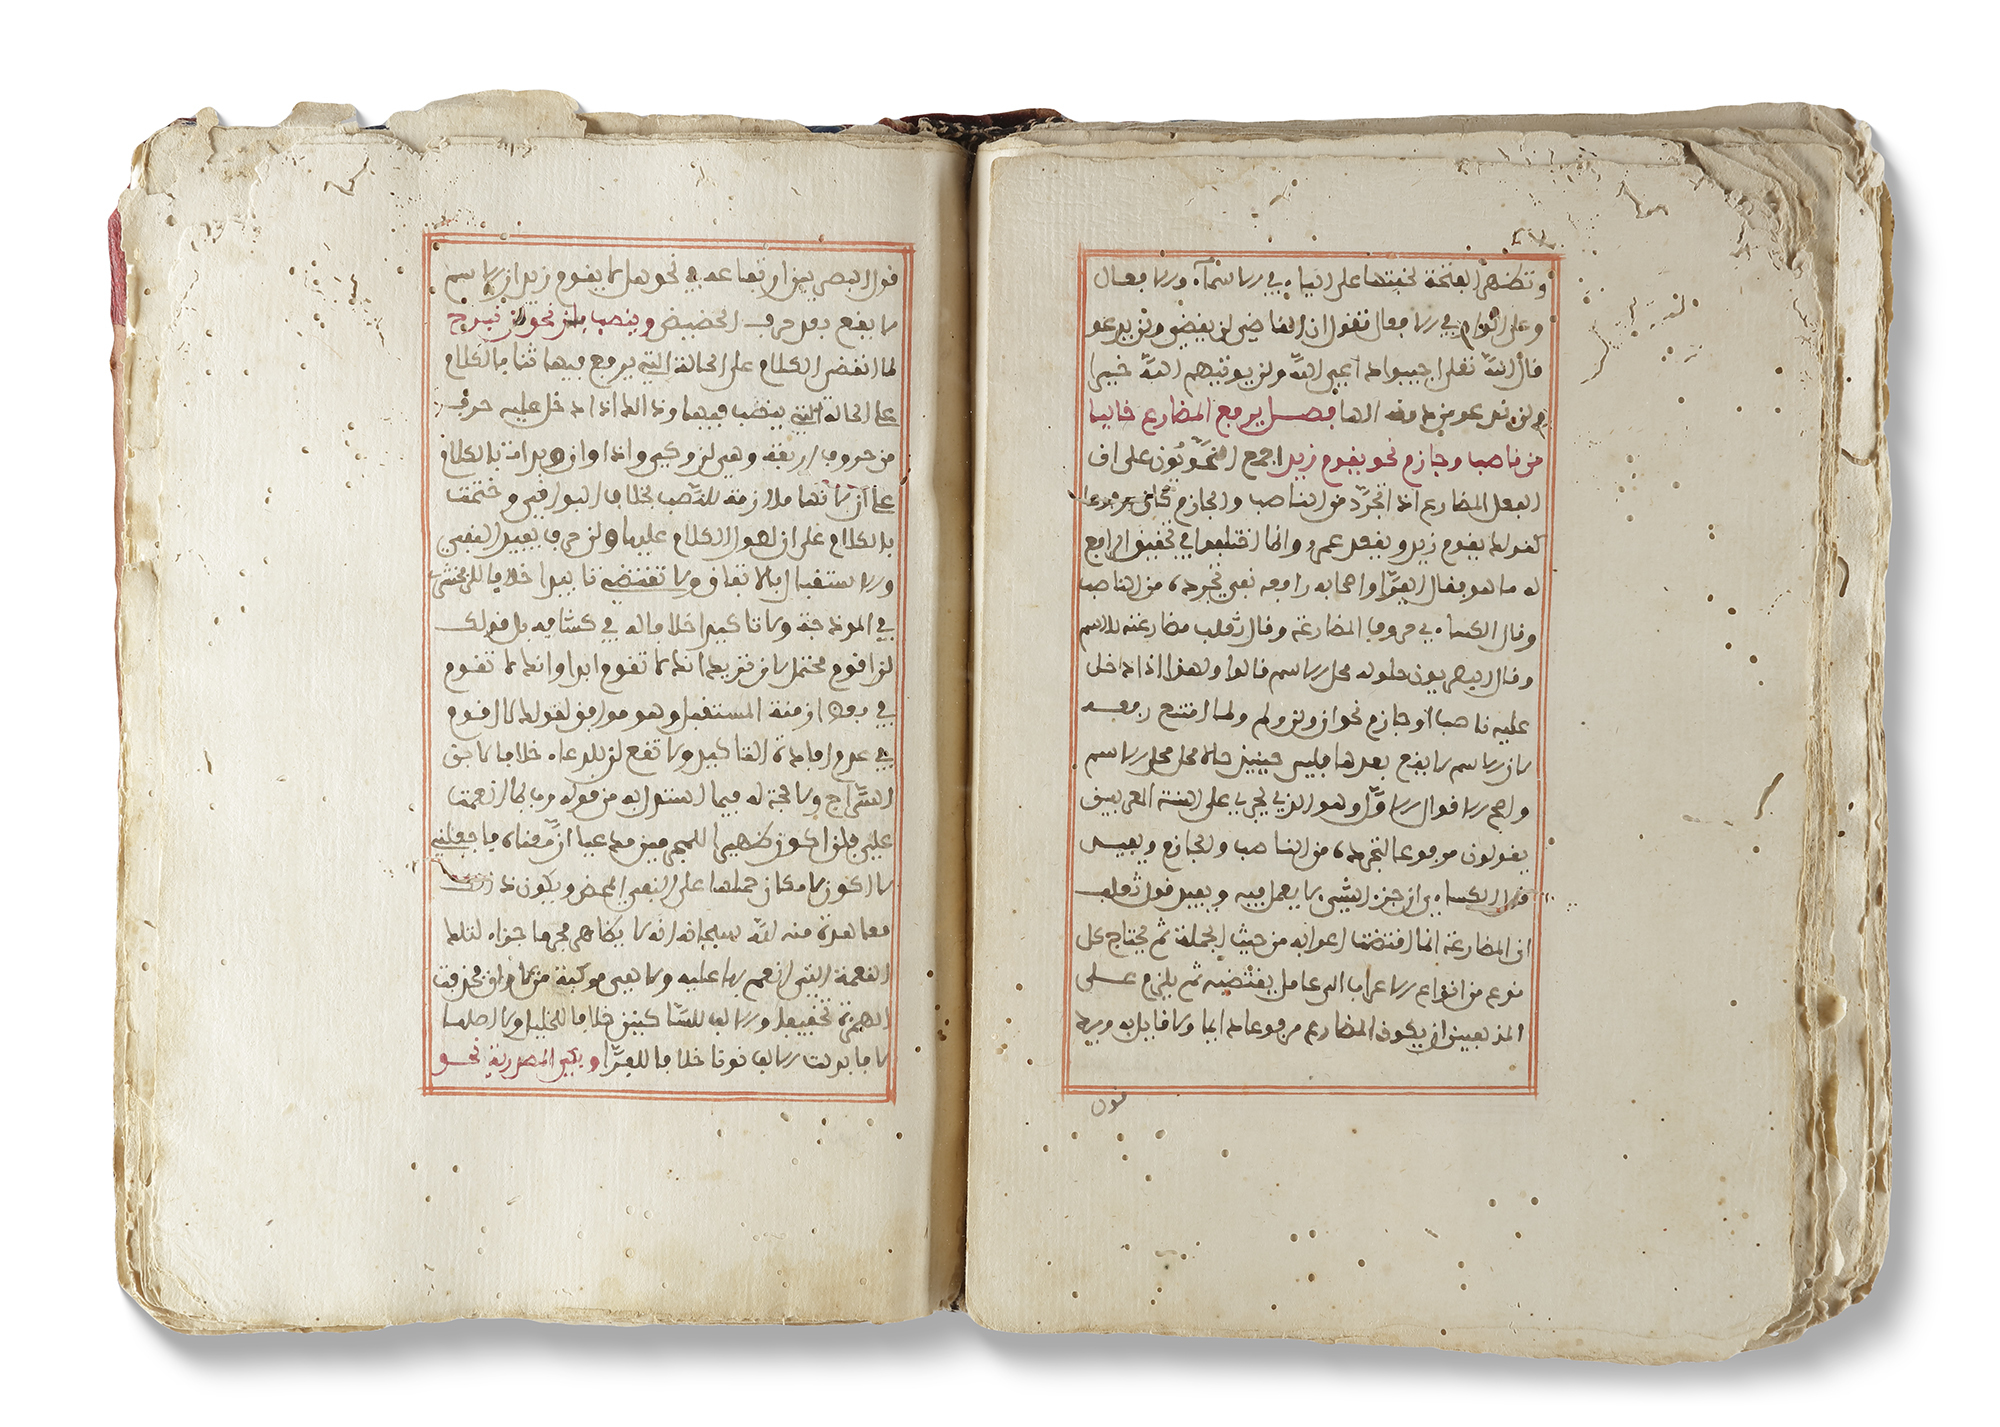 وتظهر الفتحة لخفتها على الياء في الاسماء والافعال
وعلى الواو في الافعال تقول ان القاضي لن يقضي ولن يدعو
قال الله تعلى اجيبوا داعي الله ولن يوتيهم الله خيرا
ولن ندعو من دونه الها فصل يرفع المضارع خاليا
من ناصب وجازم نحو يقوم زيد اجمع النحويون على ان
الفعل المضارع اذا تجرد من الناصب والجازم كان مرفوعا
كقولك يقوم زيد ويقعد عمرو وانما اختلفوا في تحقيق الرافع
له ما هو فقال الفرا واصحابه رافعه نفس تجرده من الناصب
وقال الكساءي حروف المضارعة وقال ثعلب مضارعته للاسم
وقال البصريون حلوله محل الاسم قالوا ولهذا اذا دخل
عليه ناصب او جازم نحو ان ولن ولم ولما امتنع رفعه
لان الاسم لا يقع بعدها فليس حينيذ حالا محل محل الاسم
واصح الاقوال الاول وهو الذي يجري على السنة المعربين
يقولون مرفوعا لتجرده من الناصب والجازم ويفسد
قول الكساءي ان جزء الشيء لا يعمل فيه ويفسد قول ثعلب
ان المضارعة انما اقتضت اعرابه من حيث الجملة ثم يحتاج كل
نوع من انواع الاعراب الى عامل يقتضيه ثم يلزم على
المذهبين ان يكون المضارع مرفوعا دايما ولا قايل به ويرد
قول
قول البصريين ارتفاعه في نحو هلا يقوم زيد لان الاسم
لا يقع بعد حرف التحضيض وينصب بلن نحو لن نبرح
لما انقضى الكلام على الحالة التي يرفع فيها ثنا بالكلام
على الحالة التي ينصب فيها وذالك اذا دخل عليه حرف
من حروف اربعة وهي لن وكي واذا وان وبدات بالكلام
على لن لانها ملازمة للنصب بخلاف البواقي وختمت
بالكلام على ان لطول الكلام عليها ولن حرف يفيد النفي
والاستقبال بالاتفاق ولا تقتضي تابيدا خلافا للزمخشري
في انموذجه ولا تاكيدا خلافا له في كشافه بل قولك
لن اقوم محتمل لان تريد انك لا تقوم ابدا وانك لا تقوم
في بعض ازمنة المستقبل وهو موافق لقولك لا اقوم
في عدم افادة التاكيد ولا تقع لن للدعاء خلافا لابن
السراج ولا حجة له فيما استدل به من قوله رب بما انعمت
علي فلن اكون ظهيرا للمجرمين مدعيا ان معناه فاجعلني
لا اكون لامكان حملها على النفي المحض ويكون ذالك
معاهدة منه لله سبحانه انه لا يظاهر مجرما جزاء لتلك
النعمة التي انعم بها عليه ولا هي مركبة من لا وان فحذفت
الهمزة تخفيفا والالف للساكنين خلافا للخليل ولا اصلها
لا فابدلت الالف نونا خلافا للفرا وبكي المصدرية نحو